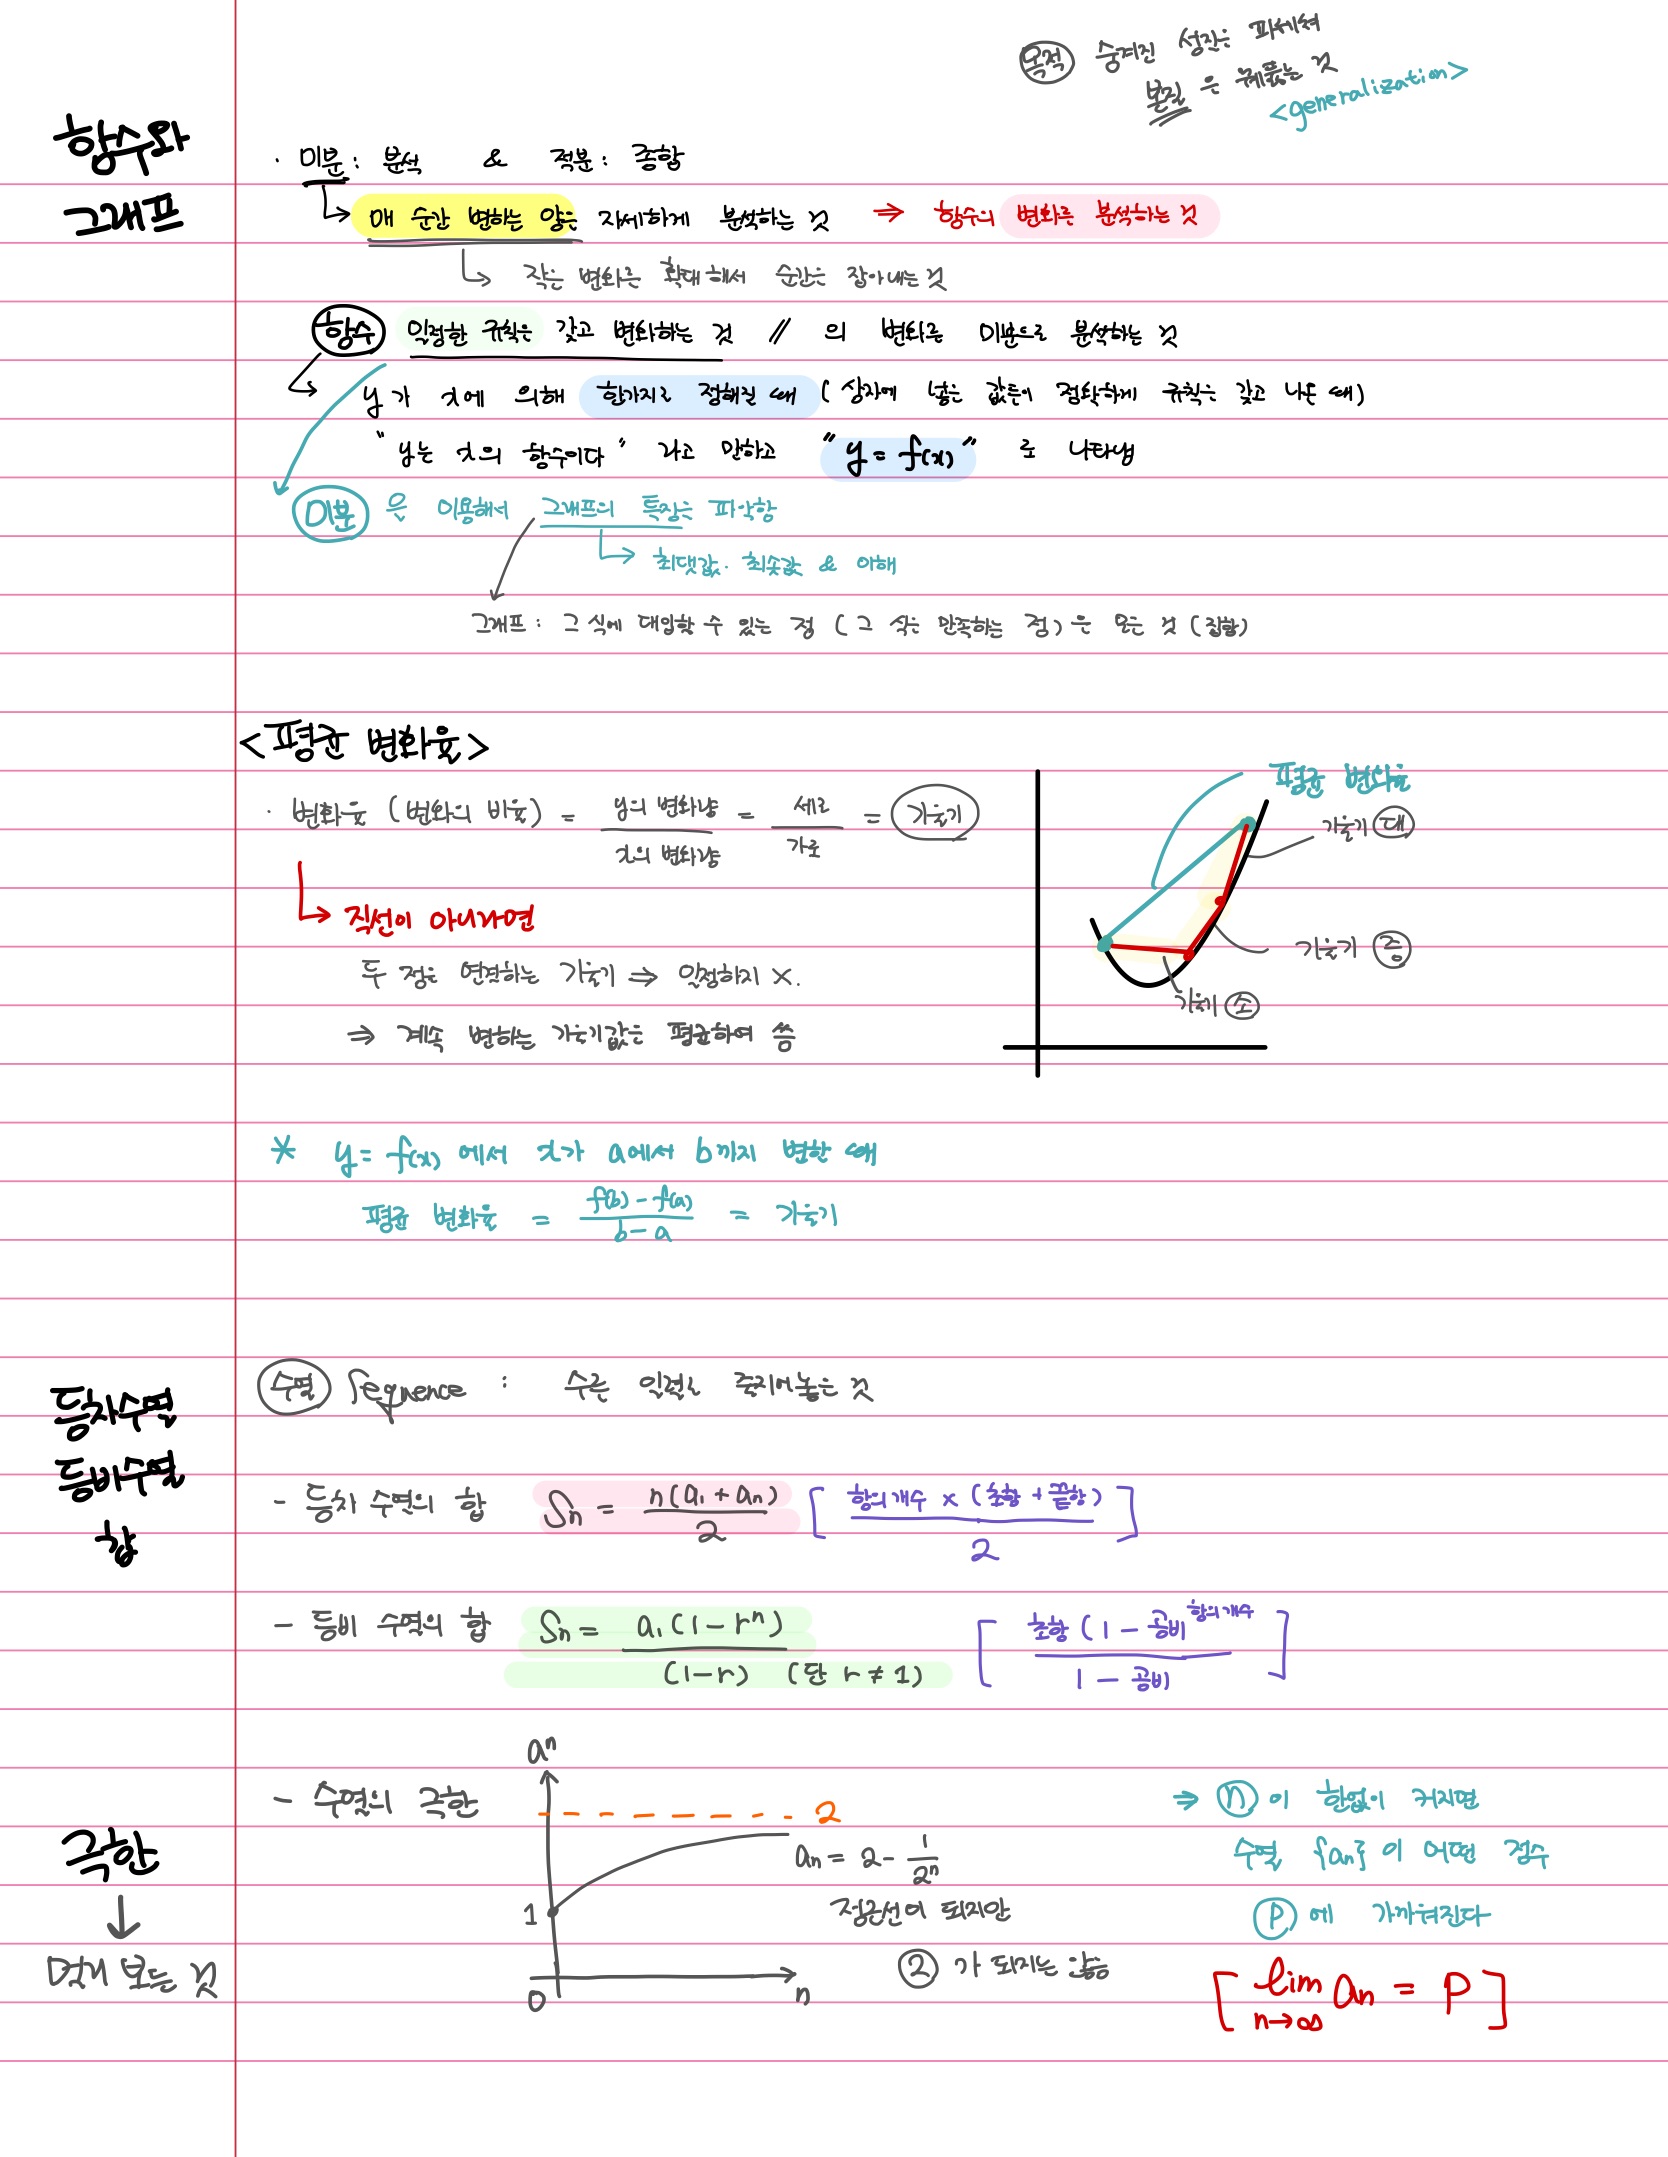 목적 숨겨진 성질을 파헤쳐
본질을 꿰뚫는 것
<generalization>
함수와
그래프
· 미분 : 분석 & 적분 : 종합
매 순간 변하는 양을 자세하게 분석하는 것 ⇒ 함수의 변화를 분석하는 것
작은 변화를 확대해서 순간을 잡아내는 것
함수 일정한 규칙을 갖고 변화하는 것 // 의 변화를 미분으로 분석하는 것
y가 x에 의해 한가지로 정해질 때 (상자에 넣은 값들이 정확하게 규칙을 갖고 나올 때)
"y는 x의 함수이다" 라고 말하고 "y = f(x)" 로 나타냄
미분 을 이용해서 그래프의 특징을 파악함
최댓값. 최솟값 & 이해
그래프 : 그 식에 대입할 수 있는 점 (그 식을 만족하는 점)을 모은 것 (집합)
<평균 변화율>
· 변화율 (변화의 비율) = y의 변화량 / x의 변화량 = 세로 / 가로 = 기울기
직선이 아니라면
두 점을 연결하는 기울기 ⇒ 일정하지 X.
⇒ 계속 변하는 기울기값을 평균하여 씀
평균 변화율
기울기 대
기울기 중
기울기 소
* y = f(x) 에서 x가 a에서 b까지 변할 때
평균 변화율 = f(b) - f(a) / b - a = 기울기
등차수열
등비수열
합
수열 Sequence : 수를 일렬로 줄지어놓은 것
- 등차 수열의 합 Sn = n(a₁ + an) / 2 [ 항의개수 × (초항 + 끝항) / 2 ]
- 등비 수열의 합 Sn = a₁(1 - rⁿ) / (1-r) (단 r ≠ 1) [ 초항 (1 - 공비^항의개수 / 1 - 공비 ]
극한
↓
멀리 보는 것
- 수열의 극한
aⁿ
2
1
0
n
an = 2 - 1/2ⁿ
점근선이 되지만
② 가 되지는 않음
⇒ ⓝ 이 한없이 커지면
수열 {an} 이 어떤 점수
Ⓟ 에 가까워진다
[ lim n→∞ an = P ]